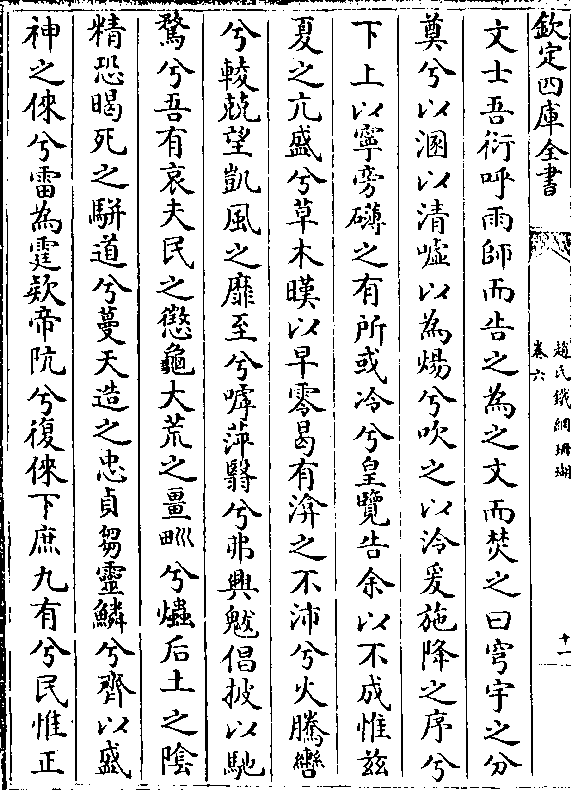 欽定四庫全書
趙氏鐵網珊瑚
卷六
十一
文士吾衍呼雨師而告之為之文而焚之曰穹宇之分
奠兮以溷以清嘘以為煬兮吹之以泠爰施降之序兮
下上以寧旁礴之有所或冷兮皇覽告余以不成惟兹
夏之亢盛兮草木暵以早零曷有渰之不沛兮火騰轡
兮較兢望凱風之靡至兮嘑蓱翳兮弗興魃倡披以馳
騖兮吾有哀夫民之懲龜大荒之畺甽兮爞后土之陰
精恐暍死之駢道兮蔓天造之忠貞芻靈鱗兮齊以盛
神之倈兮雷為霆欵帝阬兮復倈下庶九有兮民惟正